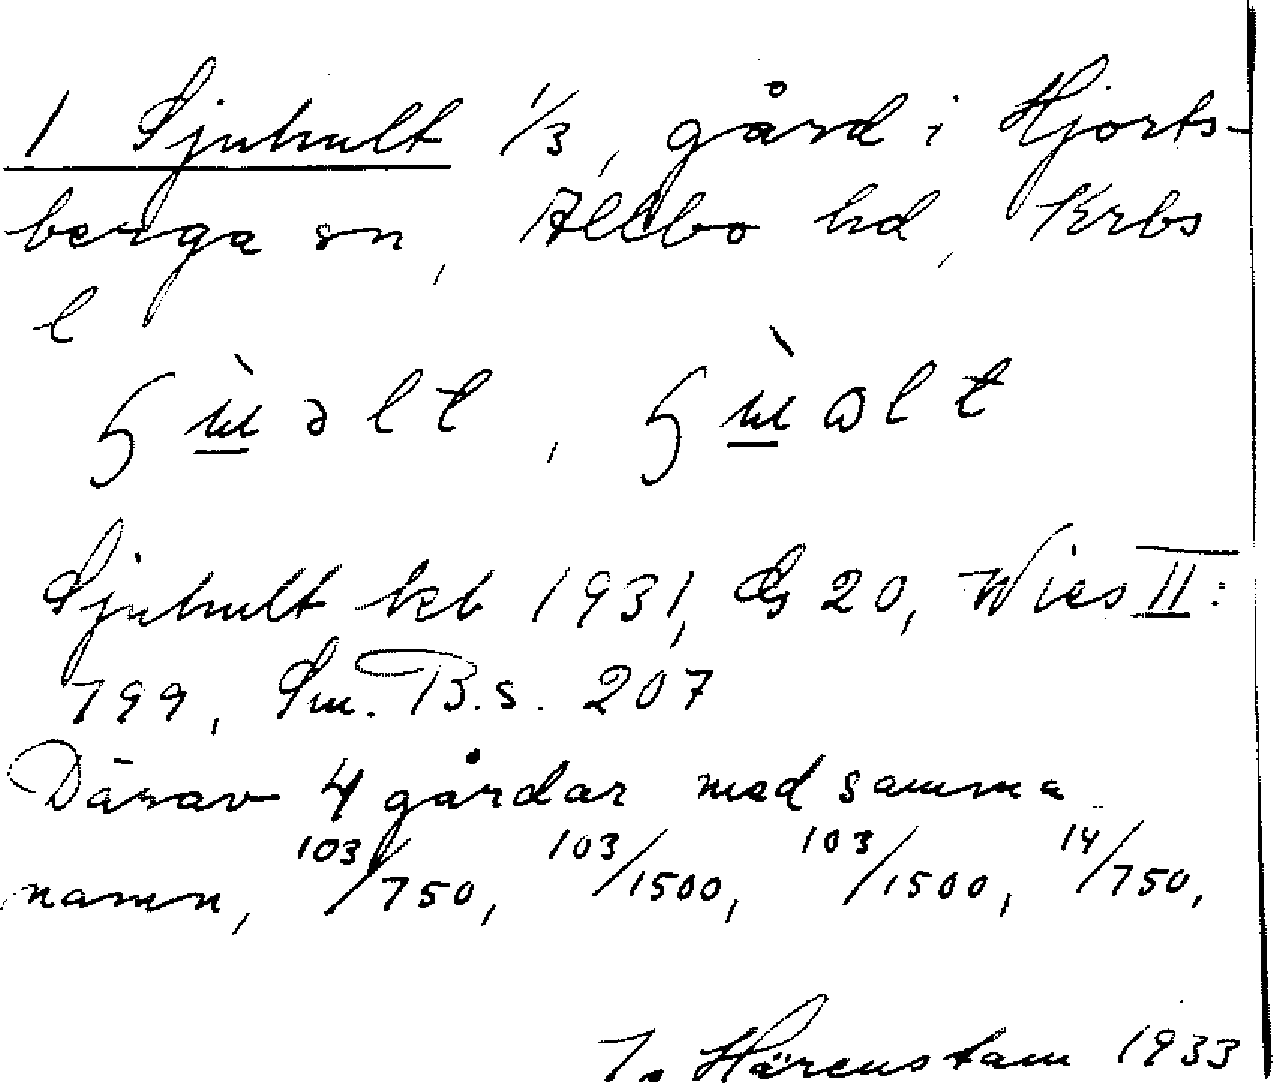 1 Sjuhult 1/3, gård i Hjorts-
berga sn, Allbo hd, Krbs
l
Sjuhult kb 1931, Gs 20, Wies II:
799, Sm. B.s. 207
Därav 4 gårdar med samma
namn, 103/750, 103/1500, 103/1500, 14/750,
I. Härenstam 1933